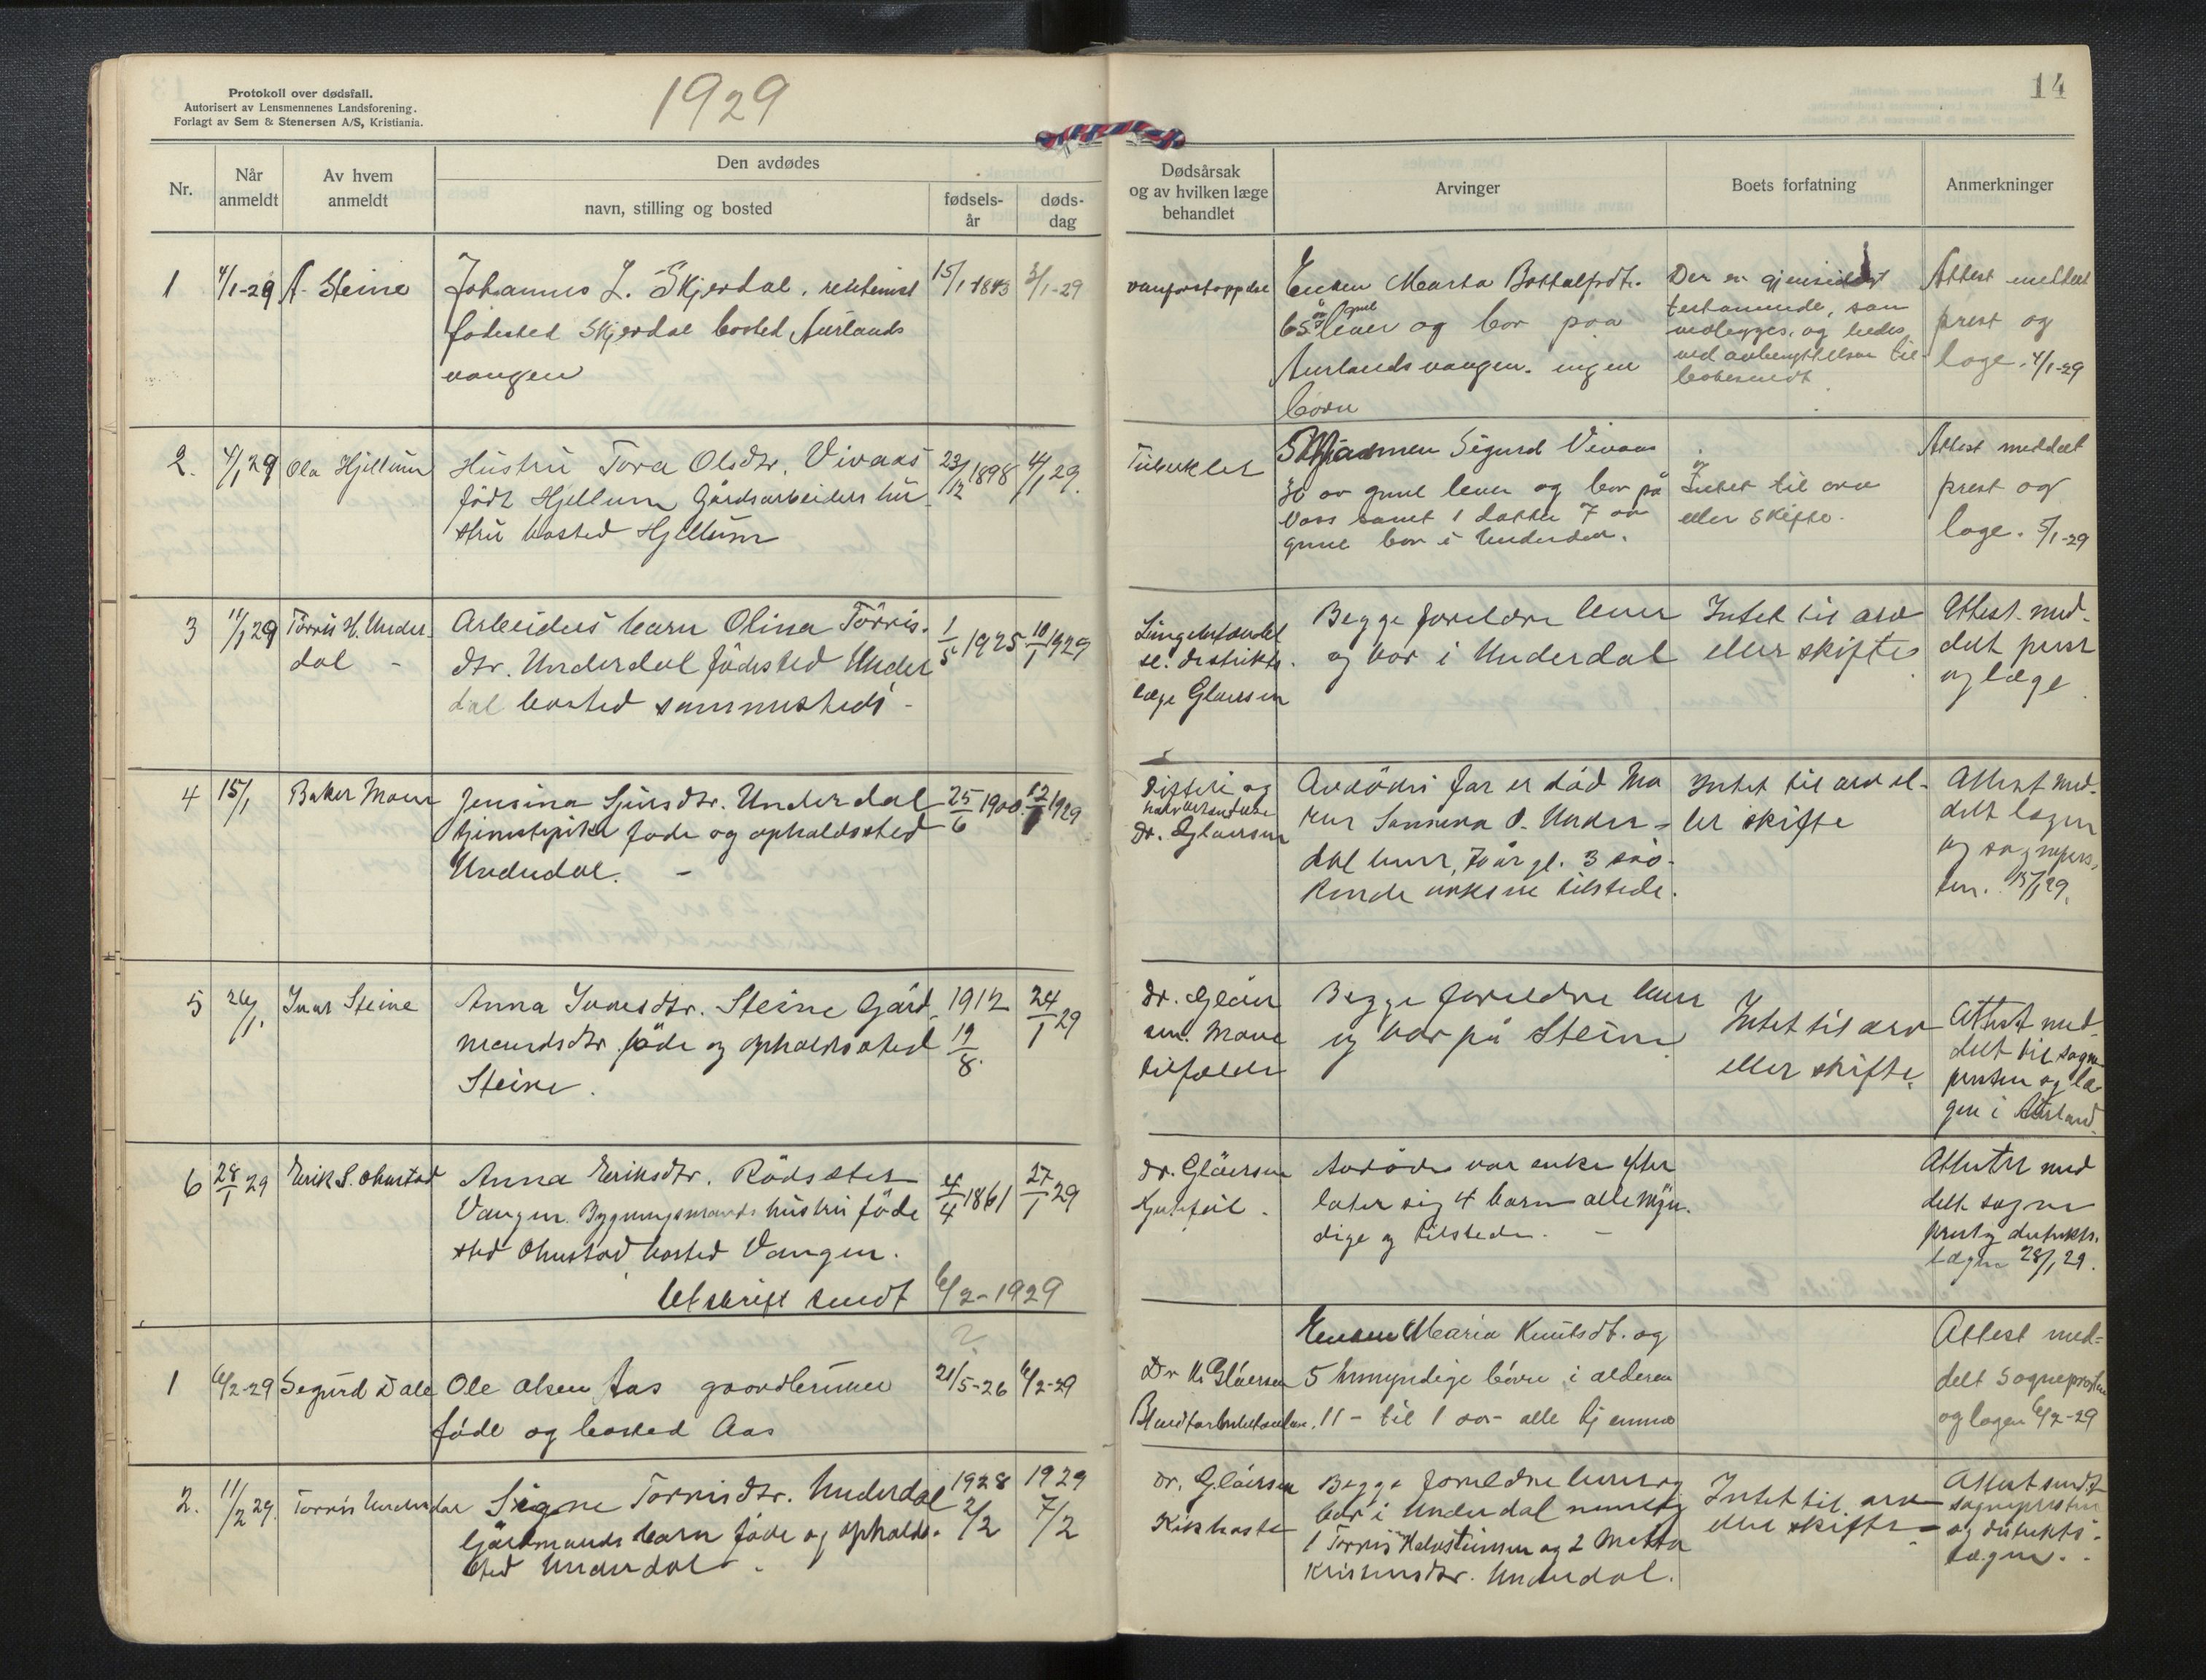 Protokoll over dødsfall.
Autorisert av Lensmennenes Landsforening.
Forlagt av Sem & Stenersen A/S, Kristiania.
1929
14
Nr.
Når anmeldt
Av hvem anmeldt
Den avdødes
navn, stilling og bosted
fødsels-
år
døds-
dag
Dødsårsak
og av hvilken læge
behandlet
Arvinger
Boets forfatning
Anmerkninger
1
4/1-29
A. Steine
Johannes L. Skjerdal,
fødested Skjerdal bosted Aurlands
vangen
15/1 1843
3/1-29
vanforstoppelse
Enken Marta Bottolfsdt.
65 år gml lever og bor paa
Aurlandsvangen. ingen
børn
Der er gjensidigt
testamente, som
vedlegges, og bedes
ved avbenyttelsen til-
bakesendt
Attest meddelt
prest og
læge. 4/1-29
2.
4/1 29
Ola Hjellum
Hustru Tora Olsdtr. Vivaas
født Hjellum Gårdsarbeiders hu-
stru bosted Hjellum
23/12 1898
4/1 29.
Tuberkler
Manen Sigurd Vivaas
30 år gml lever og bor på
Voss samt 1 datter 7 år
gml bor i Underdal.
Intet til arv
eller skifte.
Attest meddelt
prest og
læge. 5/1-29
3
11/1 29
Torris H. Under-
dal -
Arbeiders barn Olina Torris-
dtr. Underdal fødested Under
dal bosted sammesteds -
1/5 1925
10/1 1929
Lungebetændel
se. distrikts-
læge Gløersen
Begge foreldre lever
og bor i Underdal
Intet til arv
eller skifte
Attest med-
delt prest
og læge
4
15/1
Baker Moen
Jensina Sjursdtr. Underdal
tjenestepike føde og opholdssted
Underdal. -
25/6 1900
12/1 1929
Difteri og
Dr. Gløersen
Avdødes far er død Mo
ren Sannena O. Under-
dal lever, 70 år gl. 3 søs-
kende voksne tilstede.
Intet til arv el-
ler skifte
Attest med-
delt lægen
og sognepres-
ten. 15/1 29.
5
26/1.
Ivar Steine
Anna Ivarsdtr. Steine Gård-
mandsdtr. føde og opholdssted
Steine.
1912
19/8.
24/1 29
Dr. Gløer
sen. Mave
tilfælde
Begge foreldre lever
og bor på Steine
Intet til arv
eller skifte.
Attest med-
delt til sogne
presten og læ-
gen i Aurland.
6
28/1 29
Erik S. Ohnstad
Anna Eriksdtr. Rødseter
Vangen. Bygningsmands hustru føde
sted Ohnstad bosted Vangen.
4/4 1861
27/1 29
Utskrift sendt 6/2-1929
Dr. Gløersen
Avdøde var enke efter
later sig 4 barn alle myn-
dige og tilstede. -
Attester med
delt sogne
prest og distrikts-
lægen 28/1 29.
?
1
6/2-29
Sigurd Dale
Ole Olsen Aas gaardbruker
føde og bosted Aas
21/5-26
6/2-29
Dr. K. Gløersen
Enken Maria Knutsdt. og
5 umyndige børn i alderen
11 - til 1 aar - alle hjemme
Attest med-
delt Sognepresten
og lægen 6/2-29
2.
11/2 29.
Torris Underdal
Signe Torrisdtr. Underdal
Gårdmands barn føde og opholds-
sted Underdal.
1928
2/2
1929
7/2
Dr. Gløersen
Kikhoste
Begge foreldre lever og
bor i Underdal nemlig
1 Torris Helvetinsen og 2 Metta
Kristensdtr. Underdal.
Intet til arv
eller skifte
Attest sendt
sognepresten
og distrikts-
lægen.